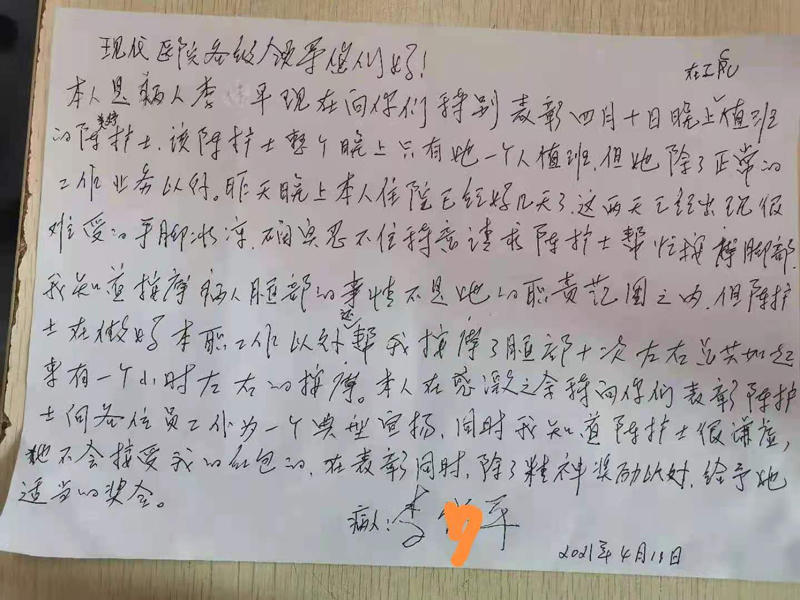 现代医院各级领导您们好！
在工作
本人是病人李 平现在向你们特别表彰四月十日晚上值班
的陈护士，该陈护士整个晚上只有她一个人值班，但她除了正常的
工作业务以外。昨天晚上本人住院已经好几天了，这两天已经出现很
难受的手脚冰凉，确实忍不住特意请求陈护士帮忙按摩脚部，
我知道按摩病人腿部的事情不是她的职责范围之内，但陈护
士在做好本职工作以外还帮我按摩了腿部十次左右总共加起
来有一个小时左右的按摩。本人在感激之余特向你们表彰陈护
士向各位员工作为一个典型宣扬，同时我知道陈护士很谦虚，
她不会接受我的红包的，在表彰同时，除了精神奖励以外，给予她
适当的奖金。
病人：李 平
2021年4月13日